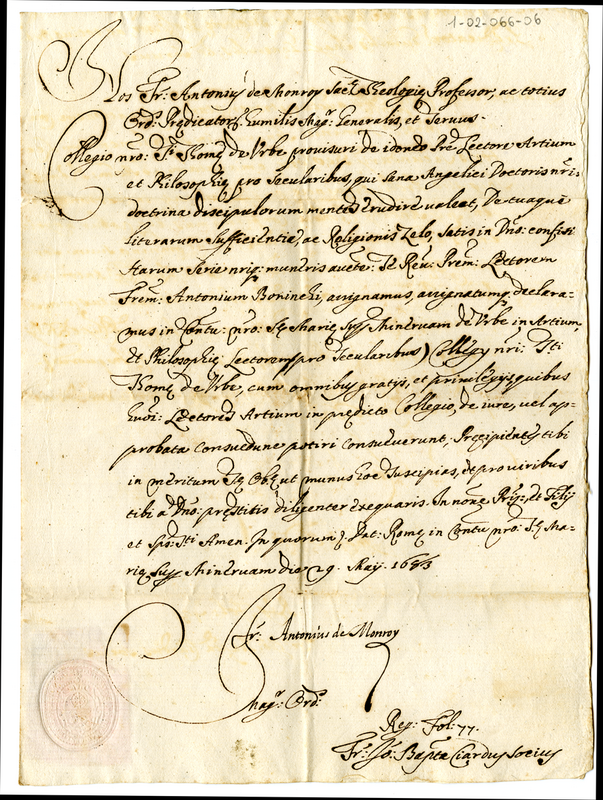 1-02-066-06
Nos Fr: Antonius de Monroy Sac: Theologię Professor, ac totius
Ord: Prędicator: humilis Mag: Generalis, et Servus.
Collegio nro: Sti Thomę de Urbe provisuri de idoneo Pre Lectore Artium
et Philosophię pro Secularibus, qui sana Angelici Doctoris nri:
doctrina discipulorum mentes erudire valeat, De tuaque
literarum sufficientia, ac Religionis Zelo, satis in Dno: confisi
Harum serie nriq: muneris aucte: Te Reu: Prem: Lectorem
Frem: Antonium assignamus, assignatumq: declara-
mus in Contu: nro: Sę Marię Supr Mineruam de Urbe in Artium,
et Philosophię Lectorem (pro Secularibus) Collegij nri: Sti
Thomę de Urbe, cum omnibus gratijs, et priuilegijs, quibus
huiõi: Lectores Artium in prędicto Collegio, de iure, uel ap-
probata consuetudine potiri consueuerunt; Pręcipientes tibi
in meritum Sę Obę ut munus hoc suscipias, et pro viribus
tibi a Dno: pręstitis diligenter exequaris. In noñe Pris: et Filij
et Spũs: Sti Amen. In quorum Dat: Romę in Contu nro: Sę Ma-
rię Supr Mineruam die 29. Maij 1683
Fr: Antonius de Monroy
Mag: Ord:
Reg: Fol: 77.
Fr: Jo: Bapta Ciardus Socius